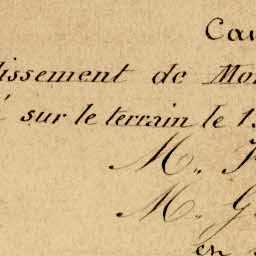 Can
dissement de Mon
é sur le terrain le 1
M. J
M. G
en